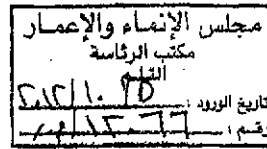 مجلس الإنماء والإعمار
مكتب الرئاسة
القلم
تاريخ الورود :
رقم :